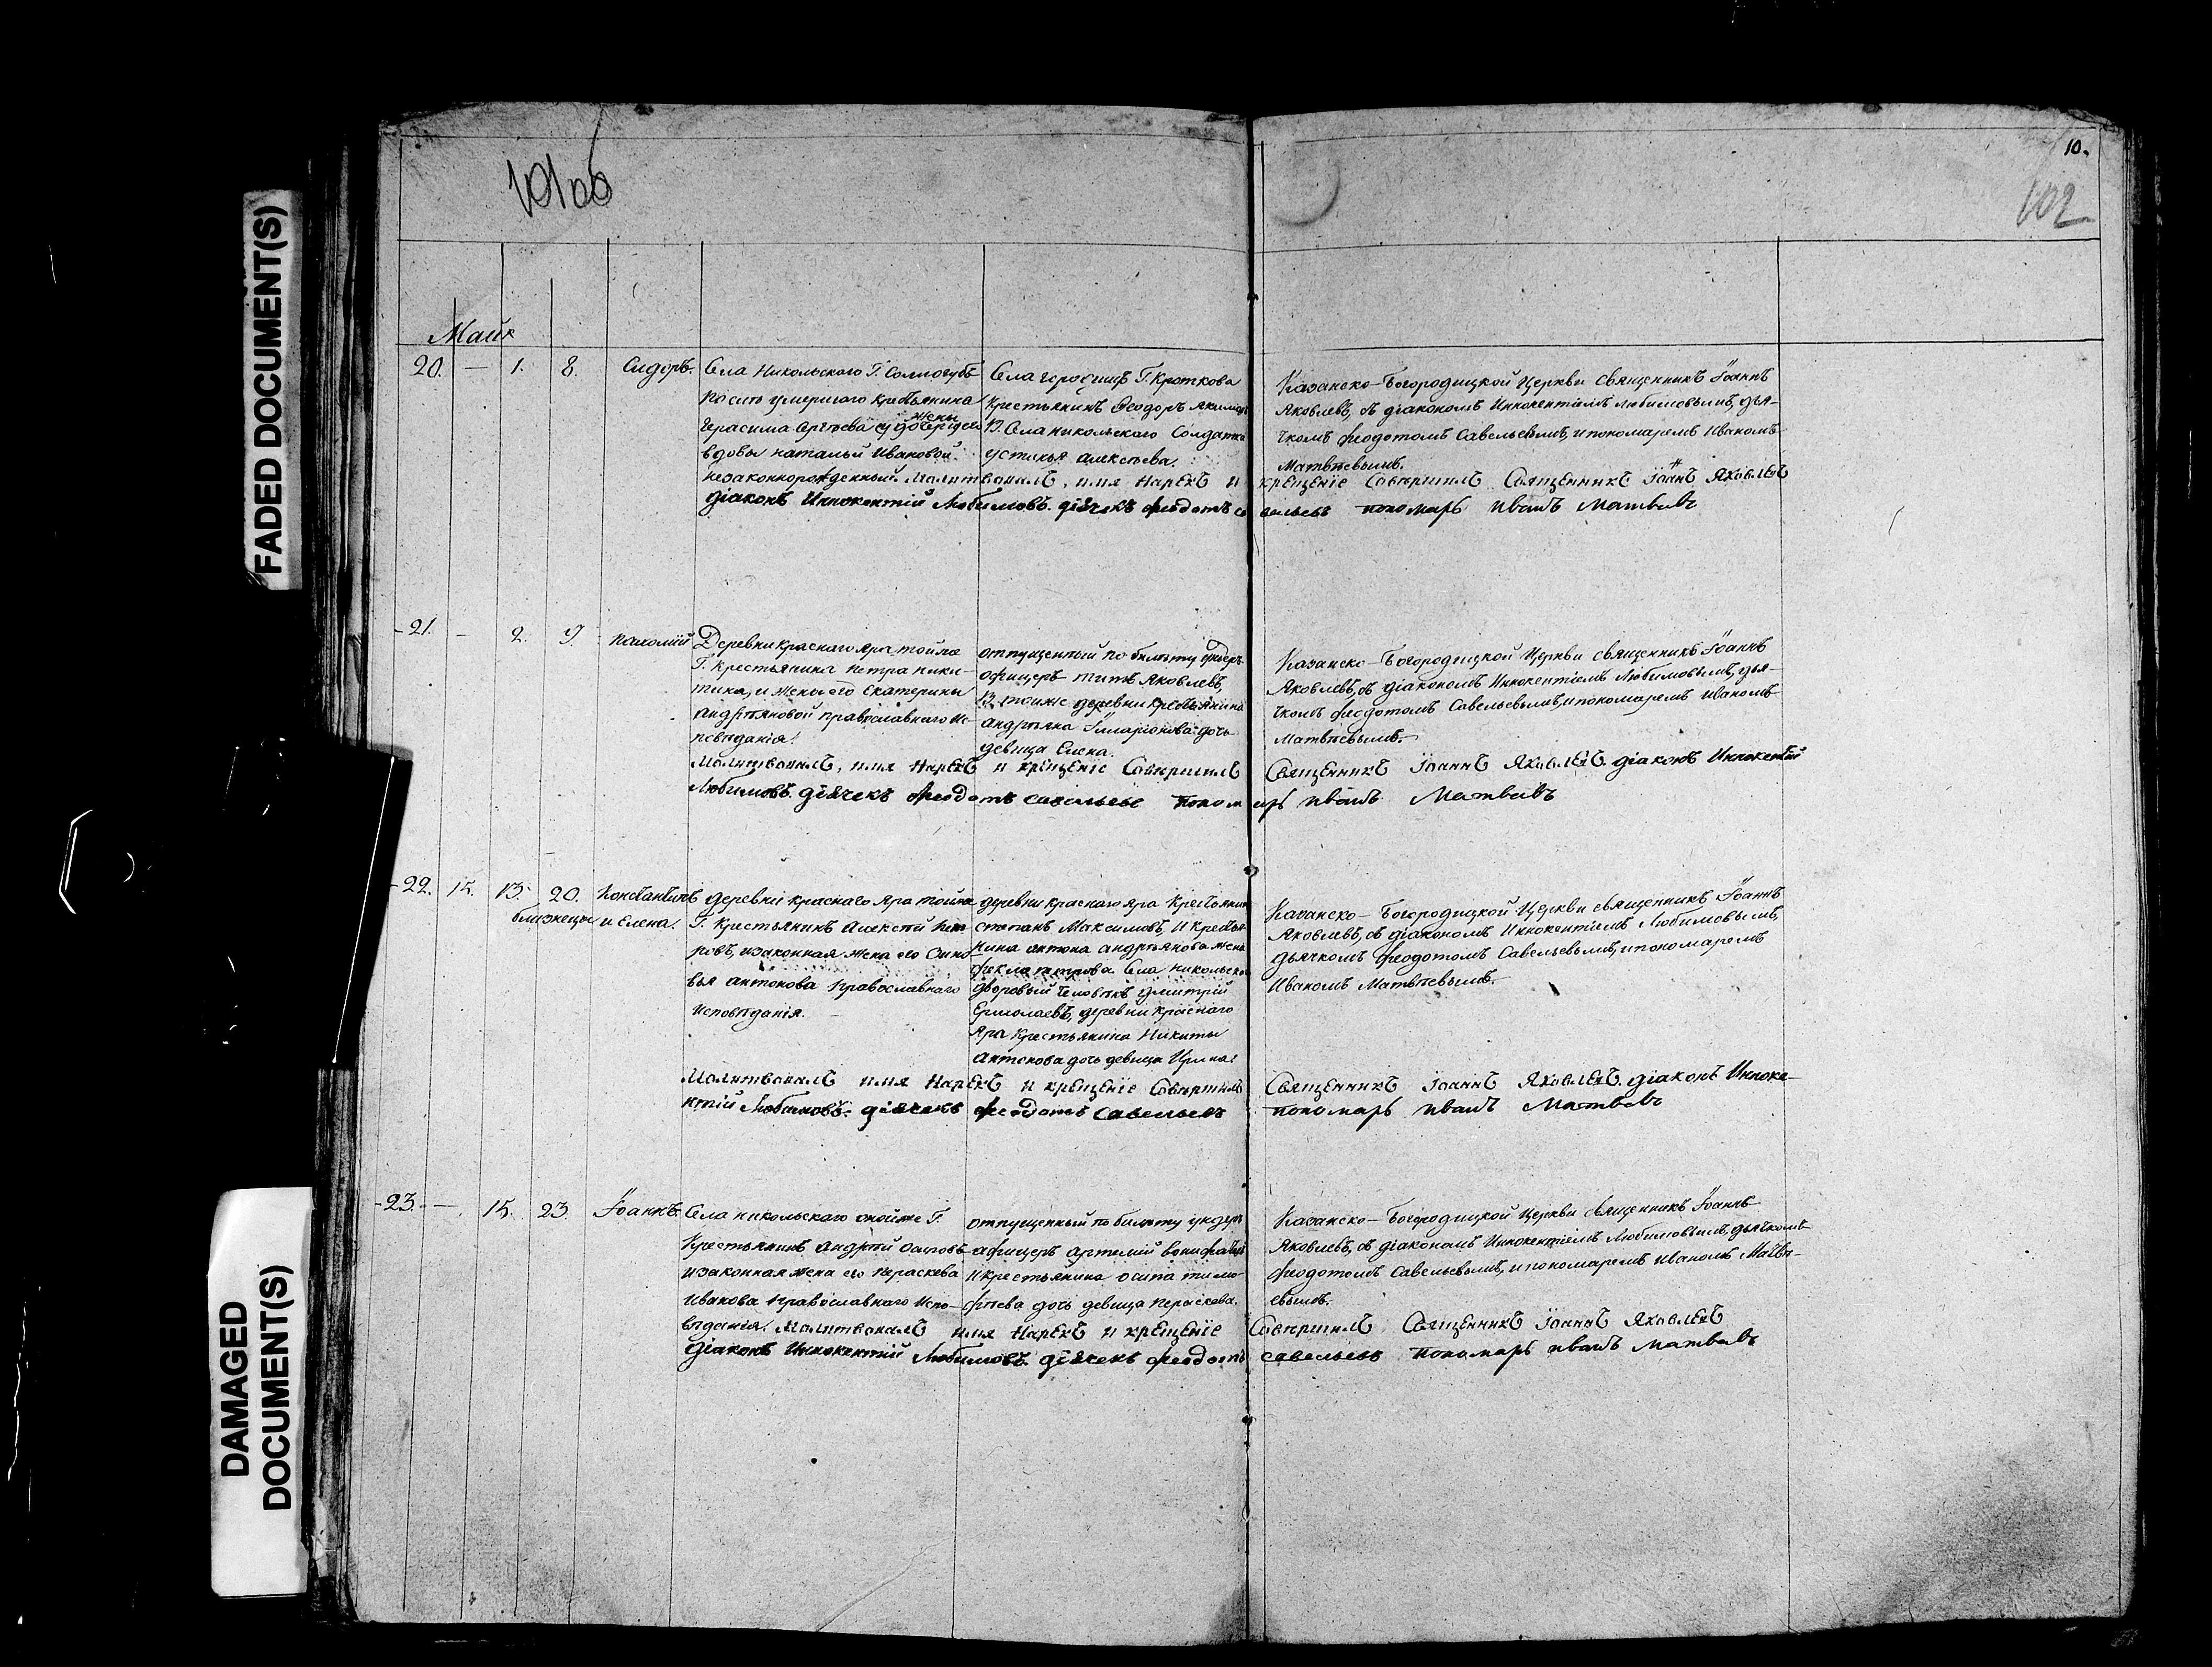 FADED DOCUMENT(S)
DAMAGED
DOCUMENT(S)
10.
102
Маия
20. — 1. 8. Сидоръ.
Села Никольскаго Г. Соллогубъ
умершаго крестьянина
Герасима Сергѣева
жены
вдовы натальи Ивановой.
незаконнорожденный.
Села городищъ Г. Кроткова
Крестьянинъ Ѳеодоръ
Села никольскаго Солдатка
устинья алексѣева.
Казанско-Богородицкой Церкви священникъ Іоаннъ
Яковлевъ, съ діакономъ Иннокентіемъ Любимовымъ, дья-
чкомъ феодотомъ Савельевымъ, и пономаремъ Иваномъ
Матвѣевымъ.
Молитвовалъ, имя Нарекъ и крещеніе Совершилъ Священникъ Іоаннъ Яковлевъ
діаконъ Иннокентій Любимовъ. дьячекъ феодотъ савельевъ пономарь иванъ Матвевъ
21. — 2. 9. пахомій
Деревни краснаго яра тойже
Г. крестьянина петра ники-
тина, и жены его Екатерины
андрѣяновой православнаго ис-
повѣданія.
отпущенный по билету ундеръ
офицеръ титъ Яковлевъ,
И тойже деревни крестьянина
андрѣяна Илларіонова дочь
девица Елена.
Казанско-Богородицкой Церкви священникъ Іоаннъ
Яковлевъ, съ діакономъ Иннокентіемъ Любимовымъ, дья-
чкомъ феодотомъ Савельевымъ, и пономаремъ иваномъ
Матвѣевымъ.
Молитвовалъ, имя Нарекъ и крещеніе Совершилъ Священникъ Іоаннъ Яковлевъ. діаконъ Иннокентій
Любимовъ. дьячекъ феодотъ савельевъ пономарь иванъ Матвевъ
22. 15. 13. 20. Константинъ
близнецы и Елена.
деревни краснаго яра тойже
Г. крестьянинъ алексѣй пет
ровъ, изаконная жена его
антонова православнаго
исповѣданія.
деревни краснаго яра крестьянинъ
степанъ Максимовъ, И кресть
нина антона андрѣянова жена
фекла петрова. Села никольскаго
дворовый человѣкъ дмитрій
Ермолаевъ, деревни краснаго
яра крестьянина Никиты
антонова дочь девица Ирина.
Казанско-Богородицкой Церкви священникъ Іоаннъ
Яковлевъ, съ діакономъ Иннокентіемъ Любимовымъ,
дьячкомъ феодотомъ Савельевымъ, и пономаремъ
Иваномъ Матвѣевымъ.
Молитвовалъ имя Нарекъ и крещеніе Совершилъ Священникъ Іоаннъ Яковлевъ. діаконъ Инноке-
нтій Любимовъ. дьячекъ феодотъ савельевъ пономарь иванъ Матвевъ
23. — 15. 23. Іоаннъ.
Села никольскаго онойже Г.
Крестьянинъ андрѣй осиповъ
изаконная жена его параскева
иванова православнаго испо-
вѣданія.
отпущенный по билету ундеръ
афицеръ артемій
И крестьянина осипа тимо-
фѣева дочь девица параскева.
Казанско-Богородицкой Церкви священникъ Іоаннъ
Яковлевъ, съ діакономъ Иннокентіемъ Любимовымъ, дьячкомъ
феодотомъ Савельевымъ, и пономаремъ иваномъ Матвѣ-
евымъ.
Молитвовалъ имя Нарекъ и крещеніе Совершилъ Священникъ Іоаннъ Яковлевъ
діаконъ Иннокентій Любимовъ. дьячекъ феодотъ савельевъ пономарь иванъ Матвевъ